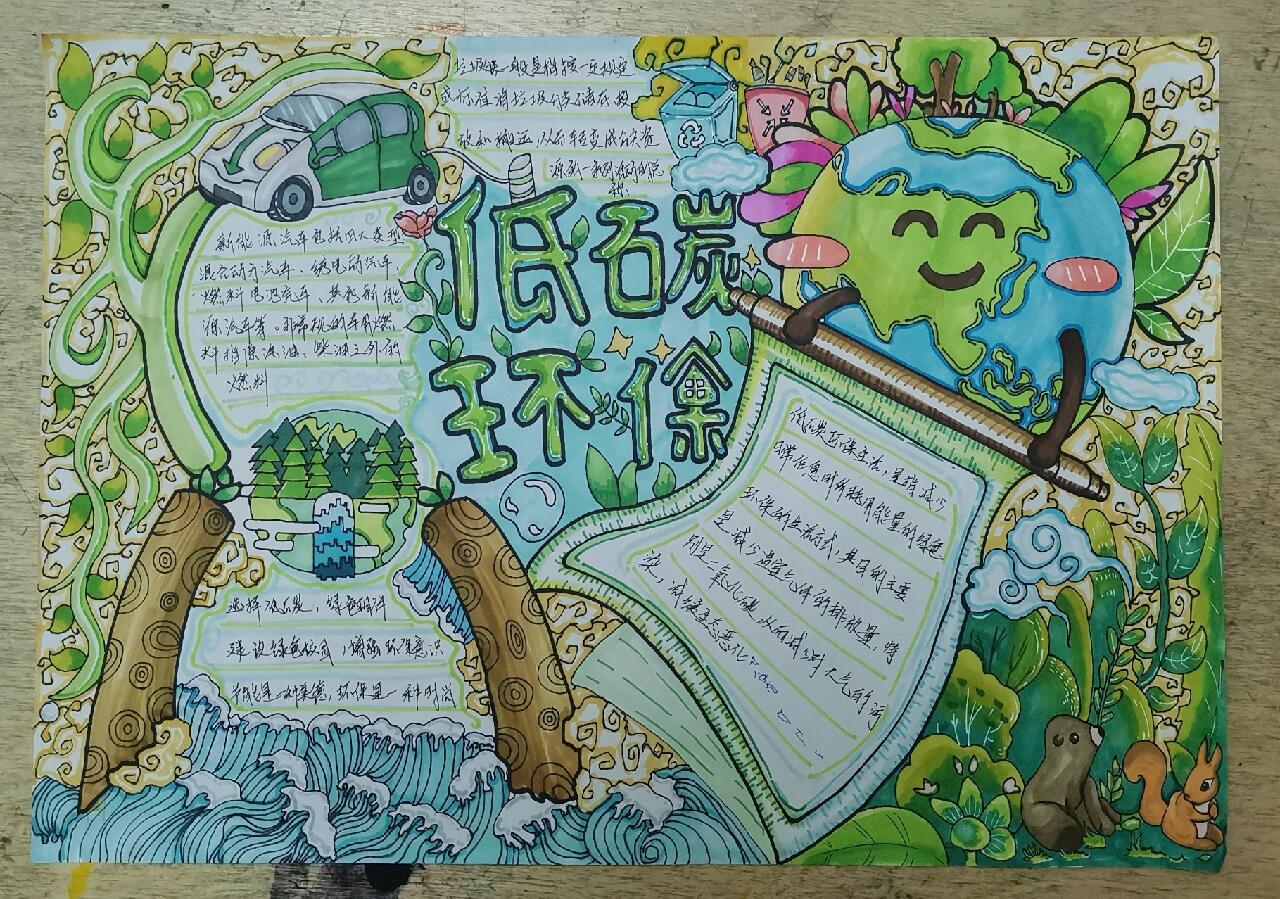 垃圾分类一般是指按一定规定
或标准将垃圾分类储存、投
放和搬运,从而转变成公共资
源的一系列活动的总
称
低碳
环保
新能源汽车包括四大类型
混合动力汽车、纯电动汽车、
燃料电池汽车、其他新能
源汽车等。非常规的车用燃
料指除汽油、柴油之外的
燃料
选择低碳,绿色相伴
建设绿色校园,增强环保意识
节能是一种美德,环保是一种时尚
低碳环保生活,是指减少
日常作息时所耗用能量的绿色
环保的生活方式,其目的主要
是减少温室气体的排放量,特
别是二氧化碳,从而减少对大气的污
染,减缓生态恶化